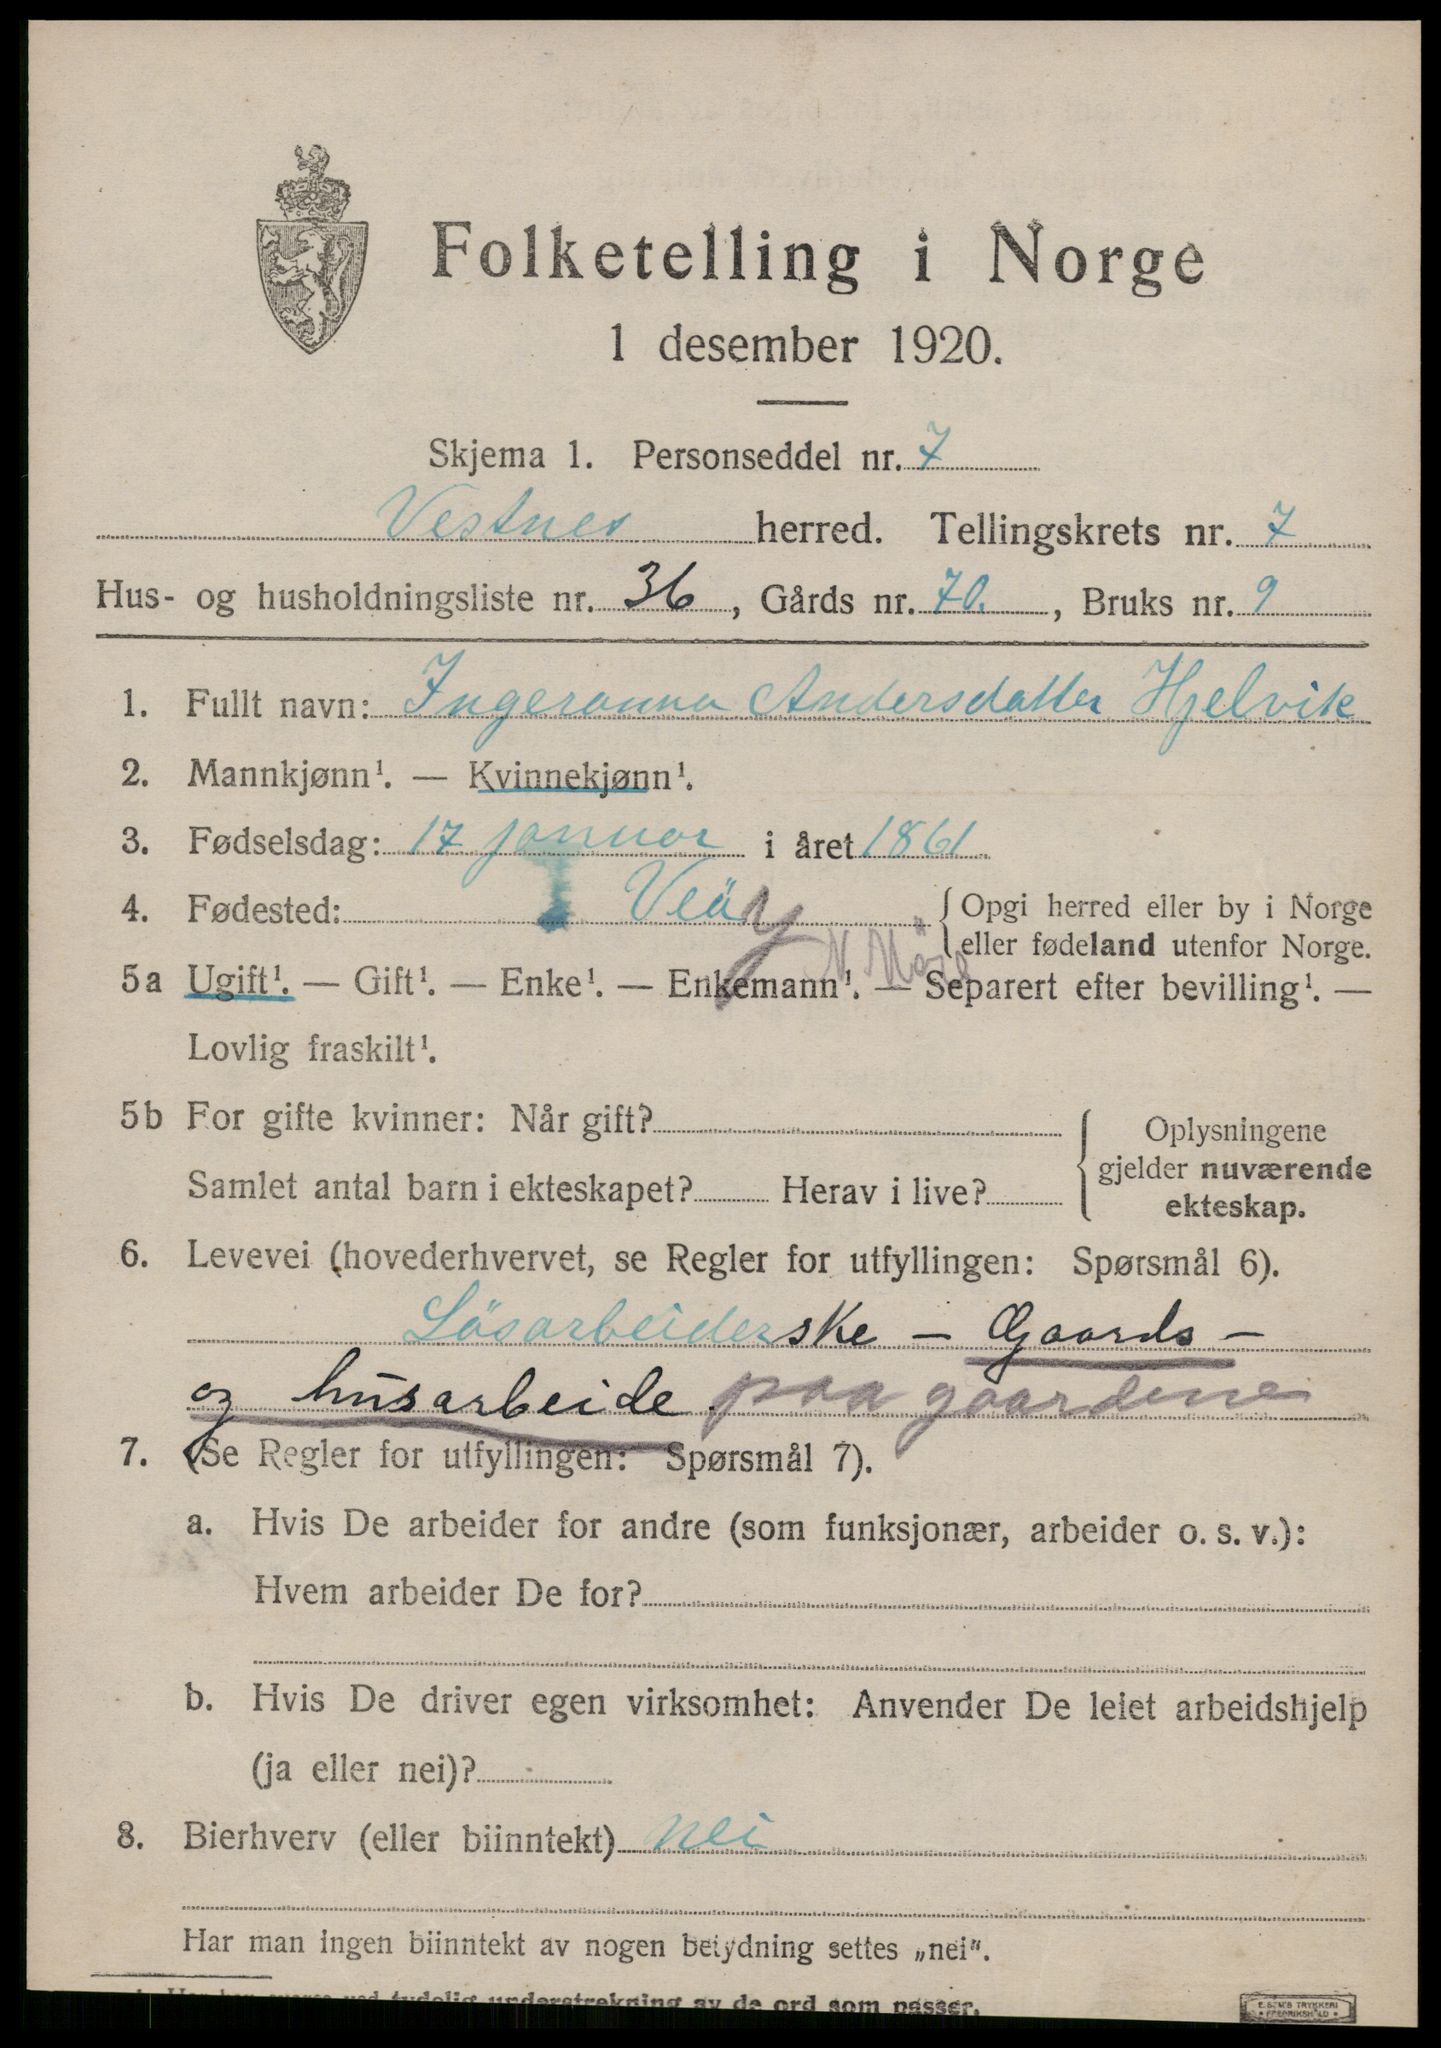 Folketelling i Norge
1 desember 1920.
Skjema 1. Personseddel nr. 7
Vestnes herred. Tellingskrets nr. 7
Hus- og husholdningsliste nr. 36, Gårds nr. 70., Bruks nr. 9
1. Fullt navn: Ingeranna Andersdatter Hjelvik
2. Mannkjønn¹. — Kvinnekjønn¹.
3. Fødselsdag: 17 januar i året 1861
4. Fødested: Veöy { Opgi herred eller by i Norge
eller fødeland utenfor Norge.
N. Möre
5a Ugift¹. — Gift¹. — Enke¹. — Enkemann¹. — Separert efter bevilling¹. —
Lovlig fraskilt¹.
5b For gifte kvinner: Når gift? { Oplysningene
gjelder nuværende
Samlet antal barn i ekteskapet? Herav i live?
ekteskap.
6. Levevei (hovederhvervet, se Regler for utfyllingen: Spørsmål 6).
Lösarbeiderske – Gaards –
og husarbeide paa gaardene
7. (Se Regler for utfyllingen: Spørsmål 7).
a. Hvis De arbeider for andre (som funksjonær, arbeider o. s. v.):
Hvem arbeider De for?
b. Hvis De driver egen virksomhet: Anvender De leiet arbeidshjelp
(ja eller nei)?
8. Bierhverv (eller biinntekt) nei
Har man ingen biinntekt av nogen betydning settes „nei".
ved tydelig understrekning av de ord som passer.
E. SEM'S TRYKKERI
FREDRIKSHALD